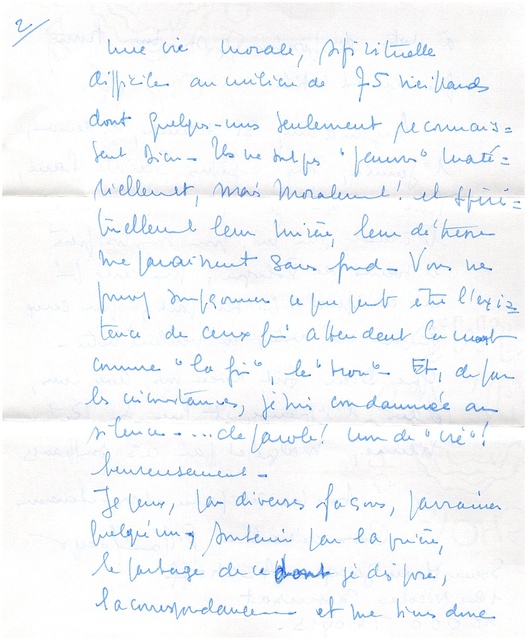 2/
une vie morale, spirituelle
difficiles au milieu de 75 vieillards
dont quelques-uns seulement reconnais=
sent Dieu - Ils ne sont pas "pauvres" maté-
riellement, mais moralement! et spiri=
tuellement leur misère, leur détresse
me paraissent sans fond - Vous ne
pouvez soupçonner ce que peut être l'exis=
tence de ceux qui attendent la mort
comme "la fin", le "trou" - Et, de par
les circonstances, je suis condamnée au
silence - ... de parole! non de "cri"!
heureusement -
Je peux, par diverses façons, parrainer
quelqu'un, soutenir par la prière,
le partage de ce dont je dispose,
la correspondance et me tiens donc